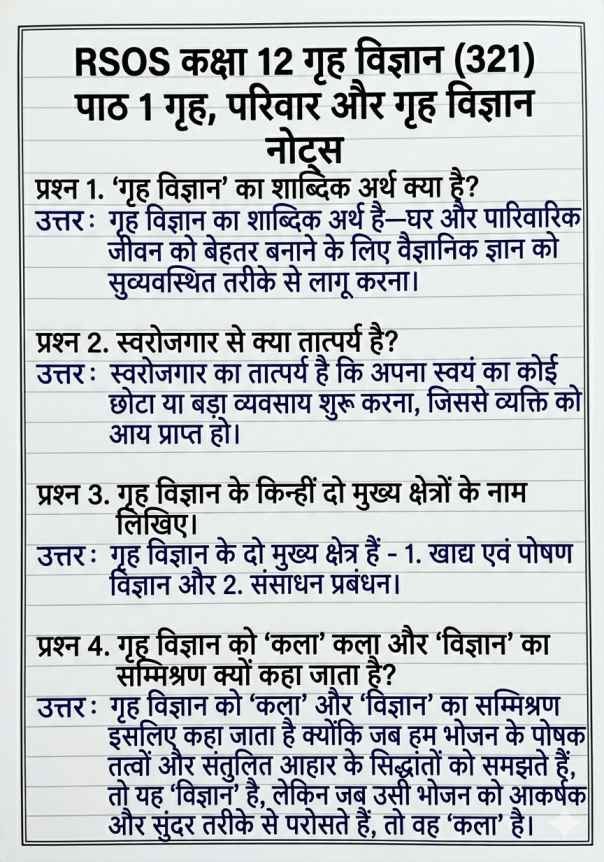 RSOS कक्षा 12 गृह विज्ञान (321)
पाठ 1 गृह, परिवार और गृह विज्ञान
नोट्स
प्रश्न 1. ‘गृह विज्ञान’ का शाब्दिक अर्थ क्या है?
उत्तर : गृह विज्ञान का शाब्दिक अर्थ है—घर और पारिवारिक
जीवन को बेहतर बनाने के लिए वैज्ञानिक ज्ञान को
सुव्यवस्थित तरीके से लागू करना।
प्रश्न 2. स्वरोजगार से क्या तात्पर्य है?
उत्तर : स्वरोजगार का तात्पर्य है कि अपना स्वयं का कोई
छोटा या बड़ा व्यवसाय शुरू करना, जिससे व्यक्ति को
आय प्राप्त हो।
प्रश्न 3. गृह विज्ञान के किन्हीं दो मुख्य क्षेत्रों के नाम
लिखिए।
उत्तर : गृह विज्ञान के दो मुख्य क्षेत्र हैं - 1. खाद्य एवं पोषण
विज्ञान और 2. संसाधन प्रबंधन।
प्रश्न 4. गृह विज्ञान को ‘कला’ कला और ‘विज्ञान’ का
सम्मिश्रण क्यों कहा जाता है?
उत्तर : गृह विज्ञान को ‘कला’ और ‘विज्ञान’ का सम्मिश्रण
इसलिए कहा जाता है क्योंकि जब हम भोजन के पोषक
तत्वों और संतुलित आहार के सिद्धांतों को समझते हैं,
तो यह ‘विज्ञान’ है, लेकिन जब उसी भोजन को आकर्षक
और सुंदर तरीके से परोसते हैं, तो वह ‘कला’ है।